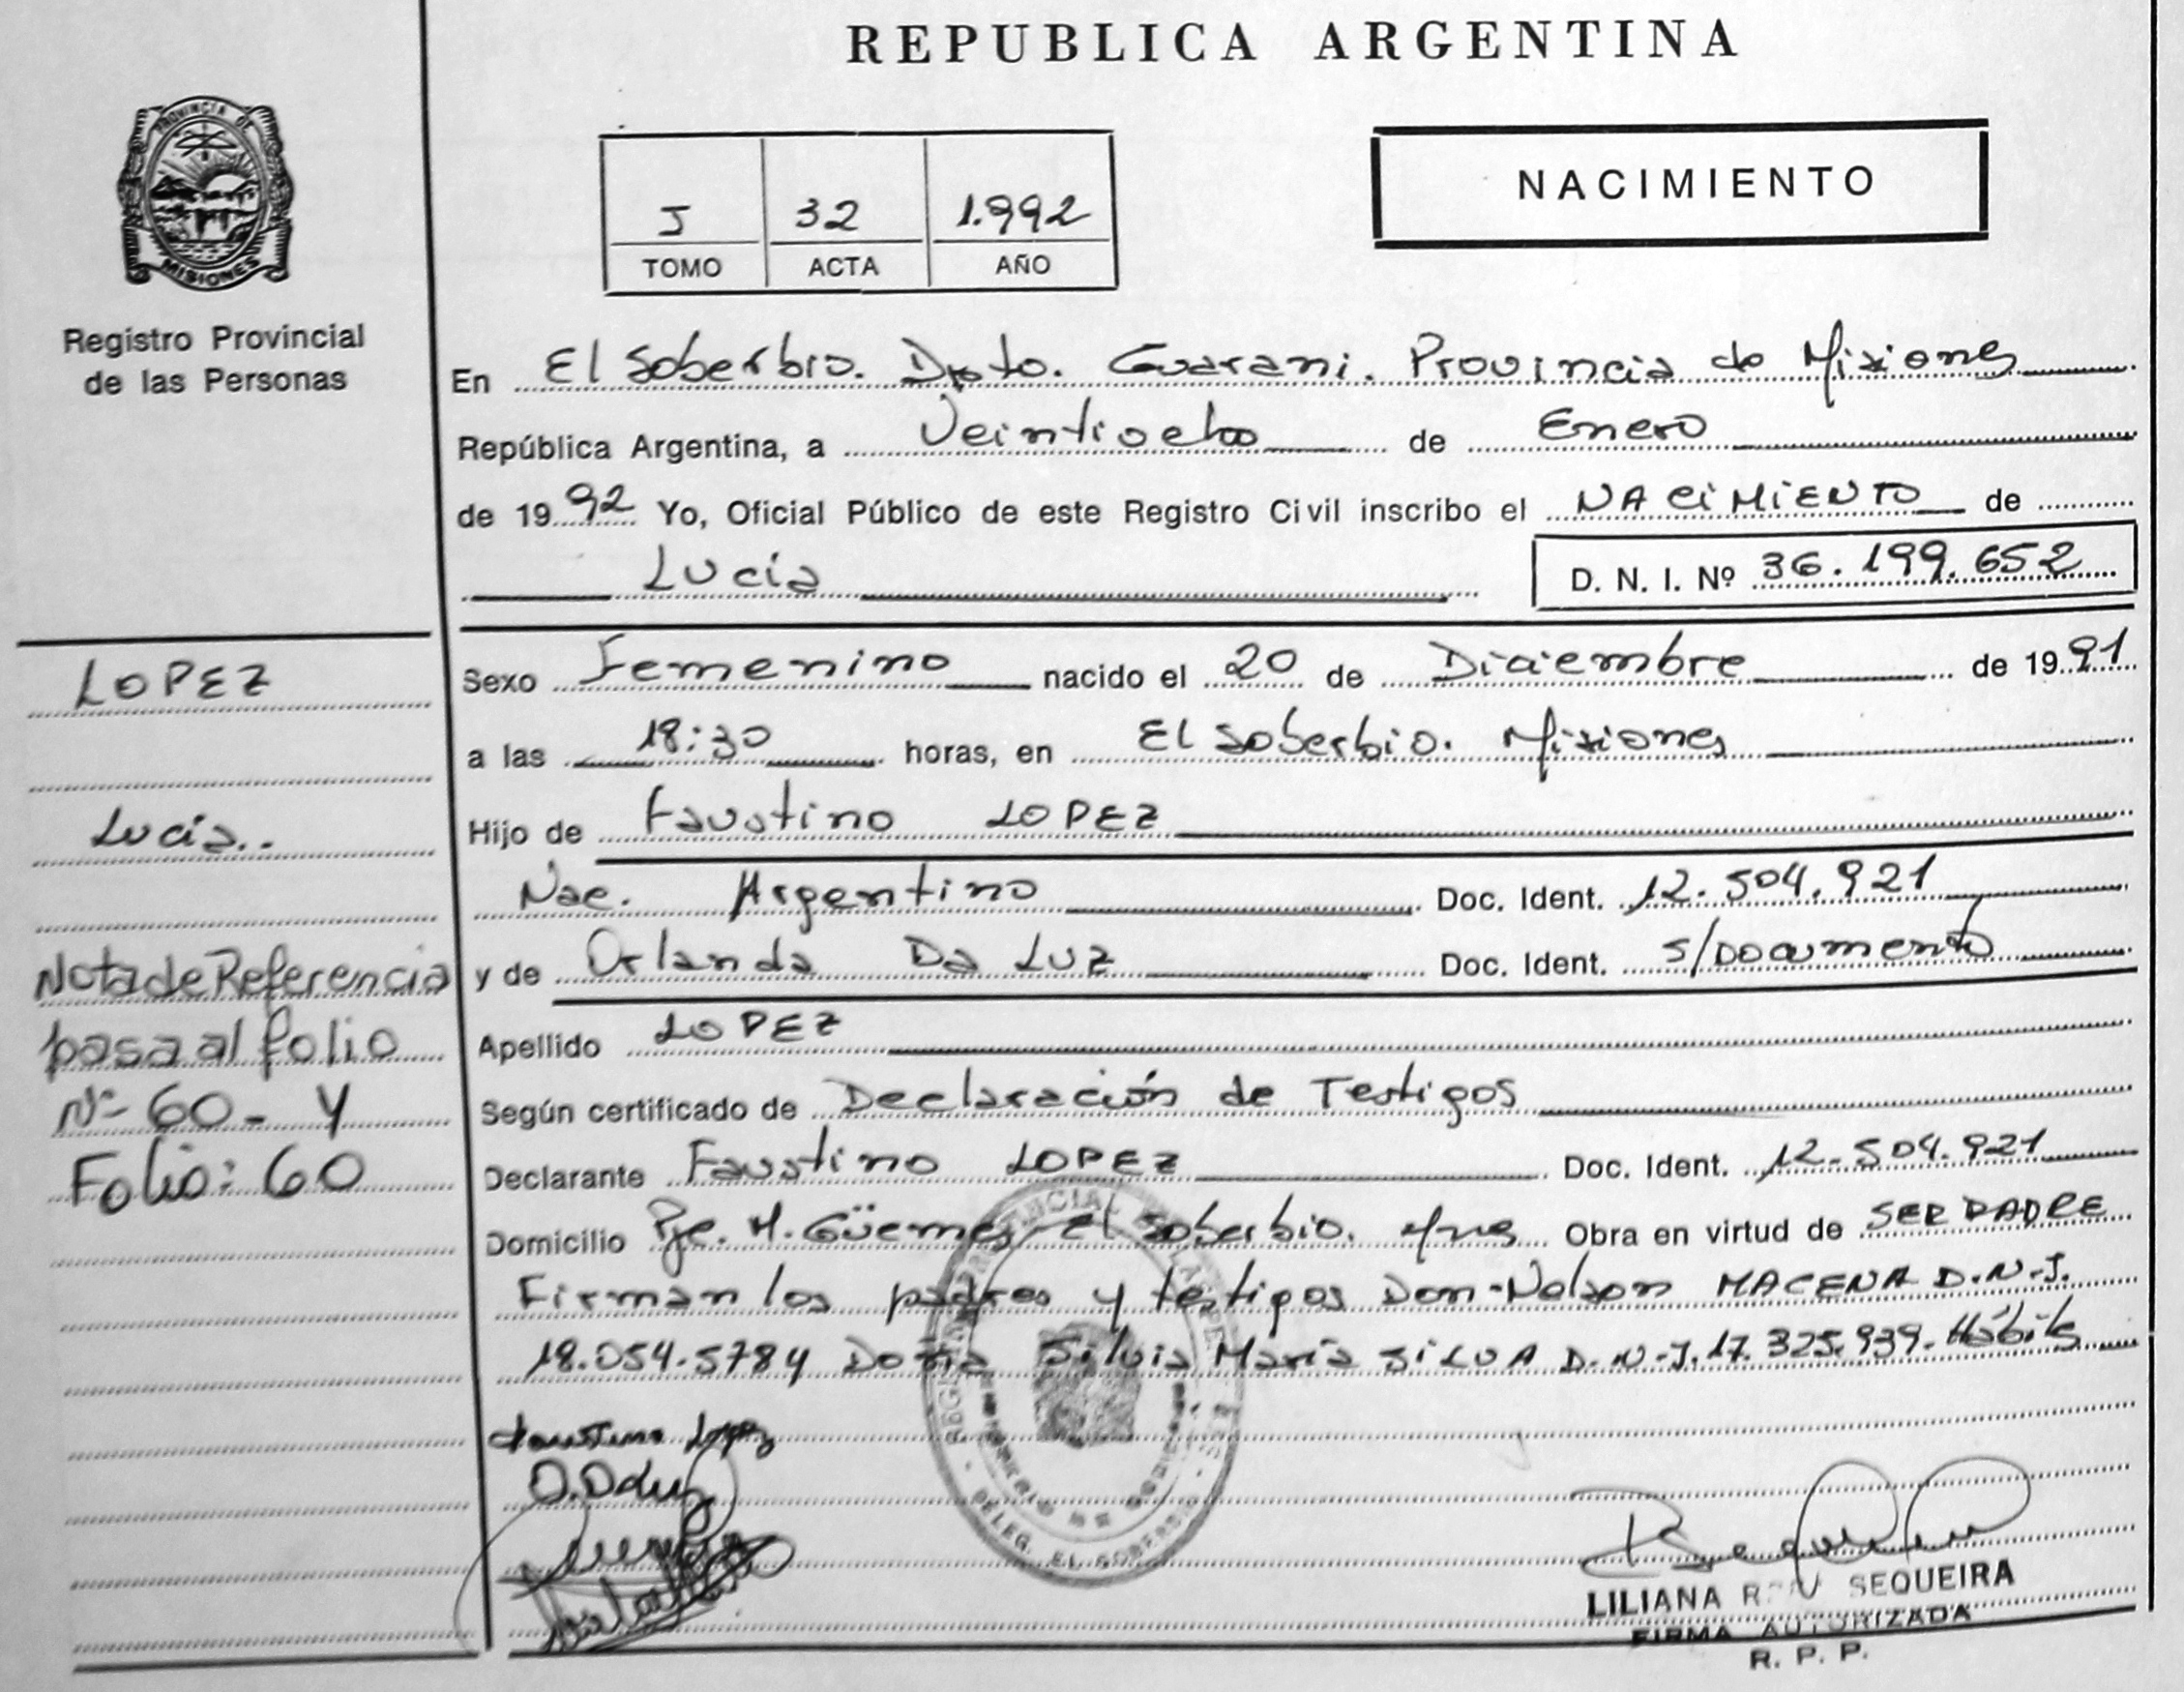 REPUBLICA ARGENTINA
PROVINCIA DE
MISIONES
Registro Provincial
de las Personas
J 32 1.992
TOMO ACTA AÑO
NACIMIENTO
En El Soberbio. Dpto. Guarani. Provincia de Misiones
República Argentina, a Veintiocho de Enero
de 1992 Yo, Oficial Público de este Registro Civil inscribo el NACIMIENTO de
Lucia D. N. I. Nº 36.199.652
Sexo Femenino nacido el 20 de Diciembre de 1991
a las 18:30 horas, en El Soberbio. Misiones
Hijo de Faustino LOPEZ
Nac. Argentino Doc. Ident. 12.504.921
y de Orlanda Da LUZ Doc. Ident. S/Documento
Apellido LOPEZ
Según certificado de Declaración de Testigos
Declarante Faustino LOPEZ Doc. Ident. 12.504.921
Domicilio Pje. M. Güemes El Soberbio. Mnes Obra en virtud de SER PADRE
Firman los padres y testigos Don Nelson MACENA D.N.I.
18.054.578 y Doña Silvia María SILVA D.N.I. 17.325.939. Hábiles
LOPEZ
Lucia..
Nota de Referencia
pasa al folio
Nº 60 - Y
Folio: 60
Faustino Lopez
DELEG. EL SOBERBIO
LILIANA SEQUEIRA
FIRMA AUTORIZADA
R. P. P.